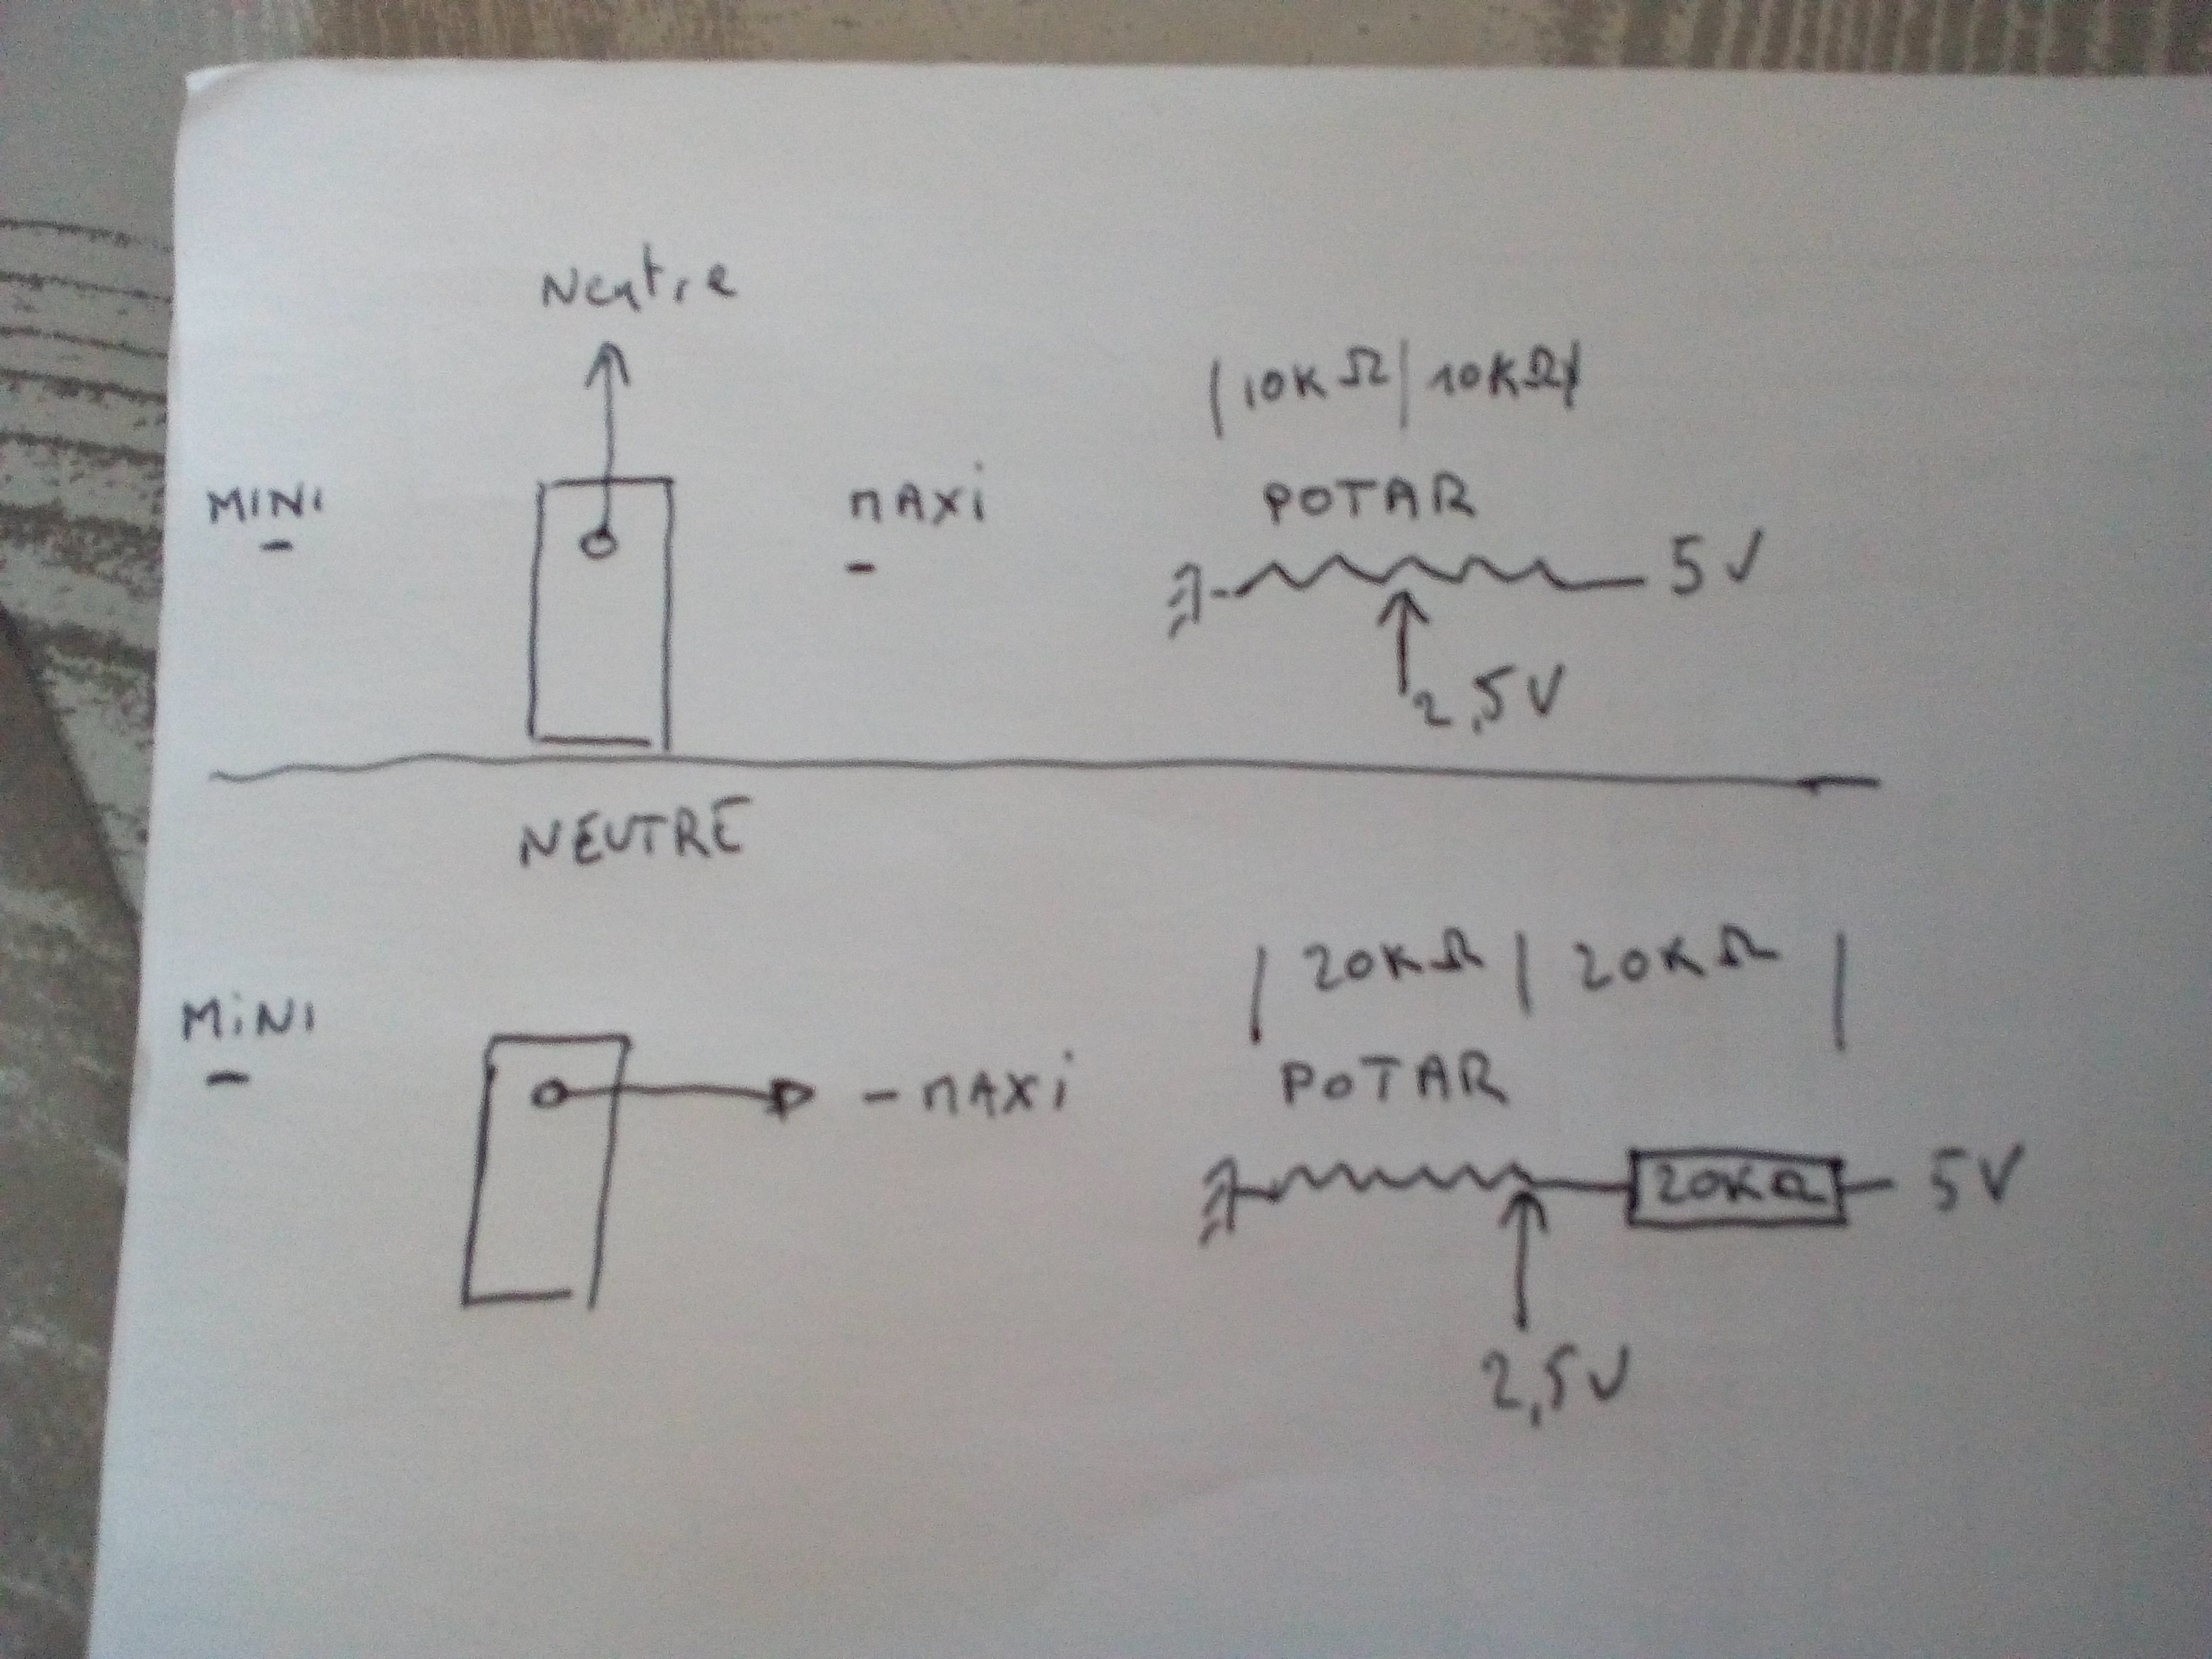 Neutre
|10KΩ|10KΩ|
MINI
MAXI
POTAR
5V
2,5V
NEUTRE
|20KΩ|20KΩ|
MiNi
-MAXI
POTAR
20KΩ
5V
2,5V